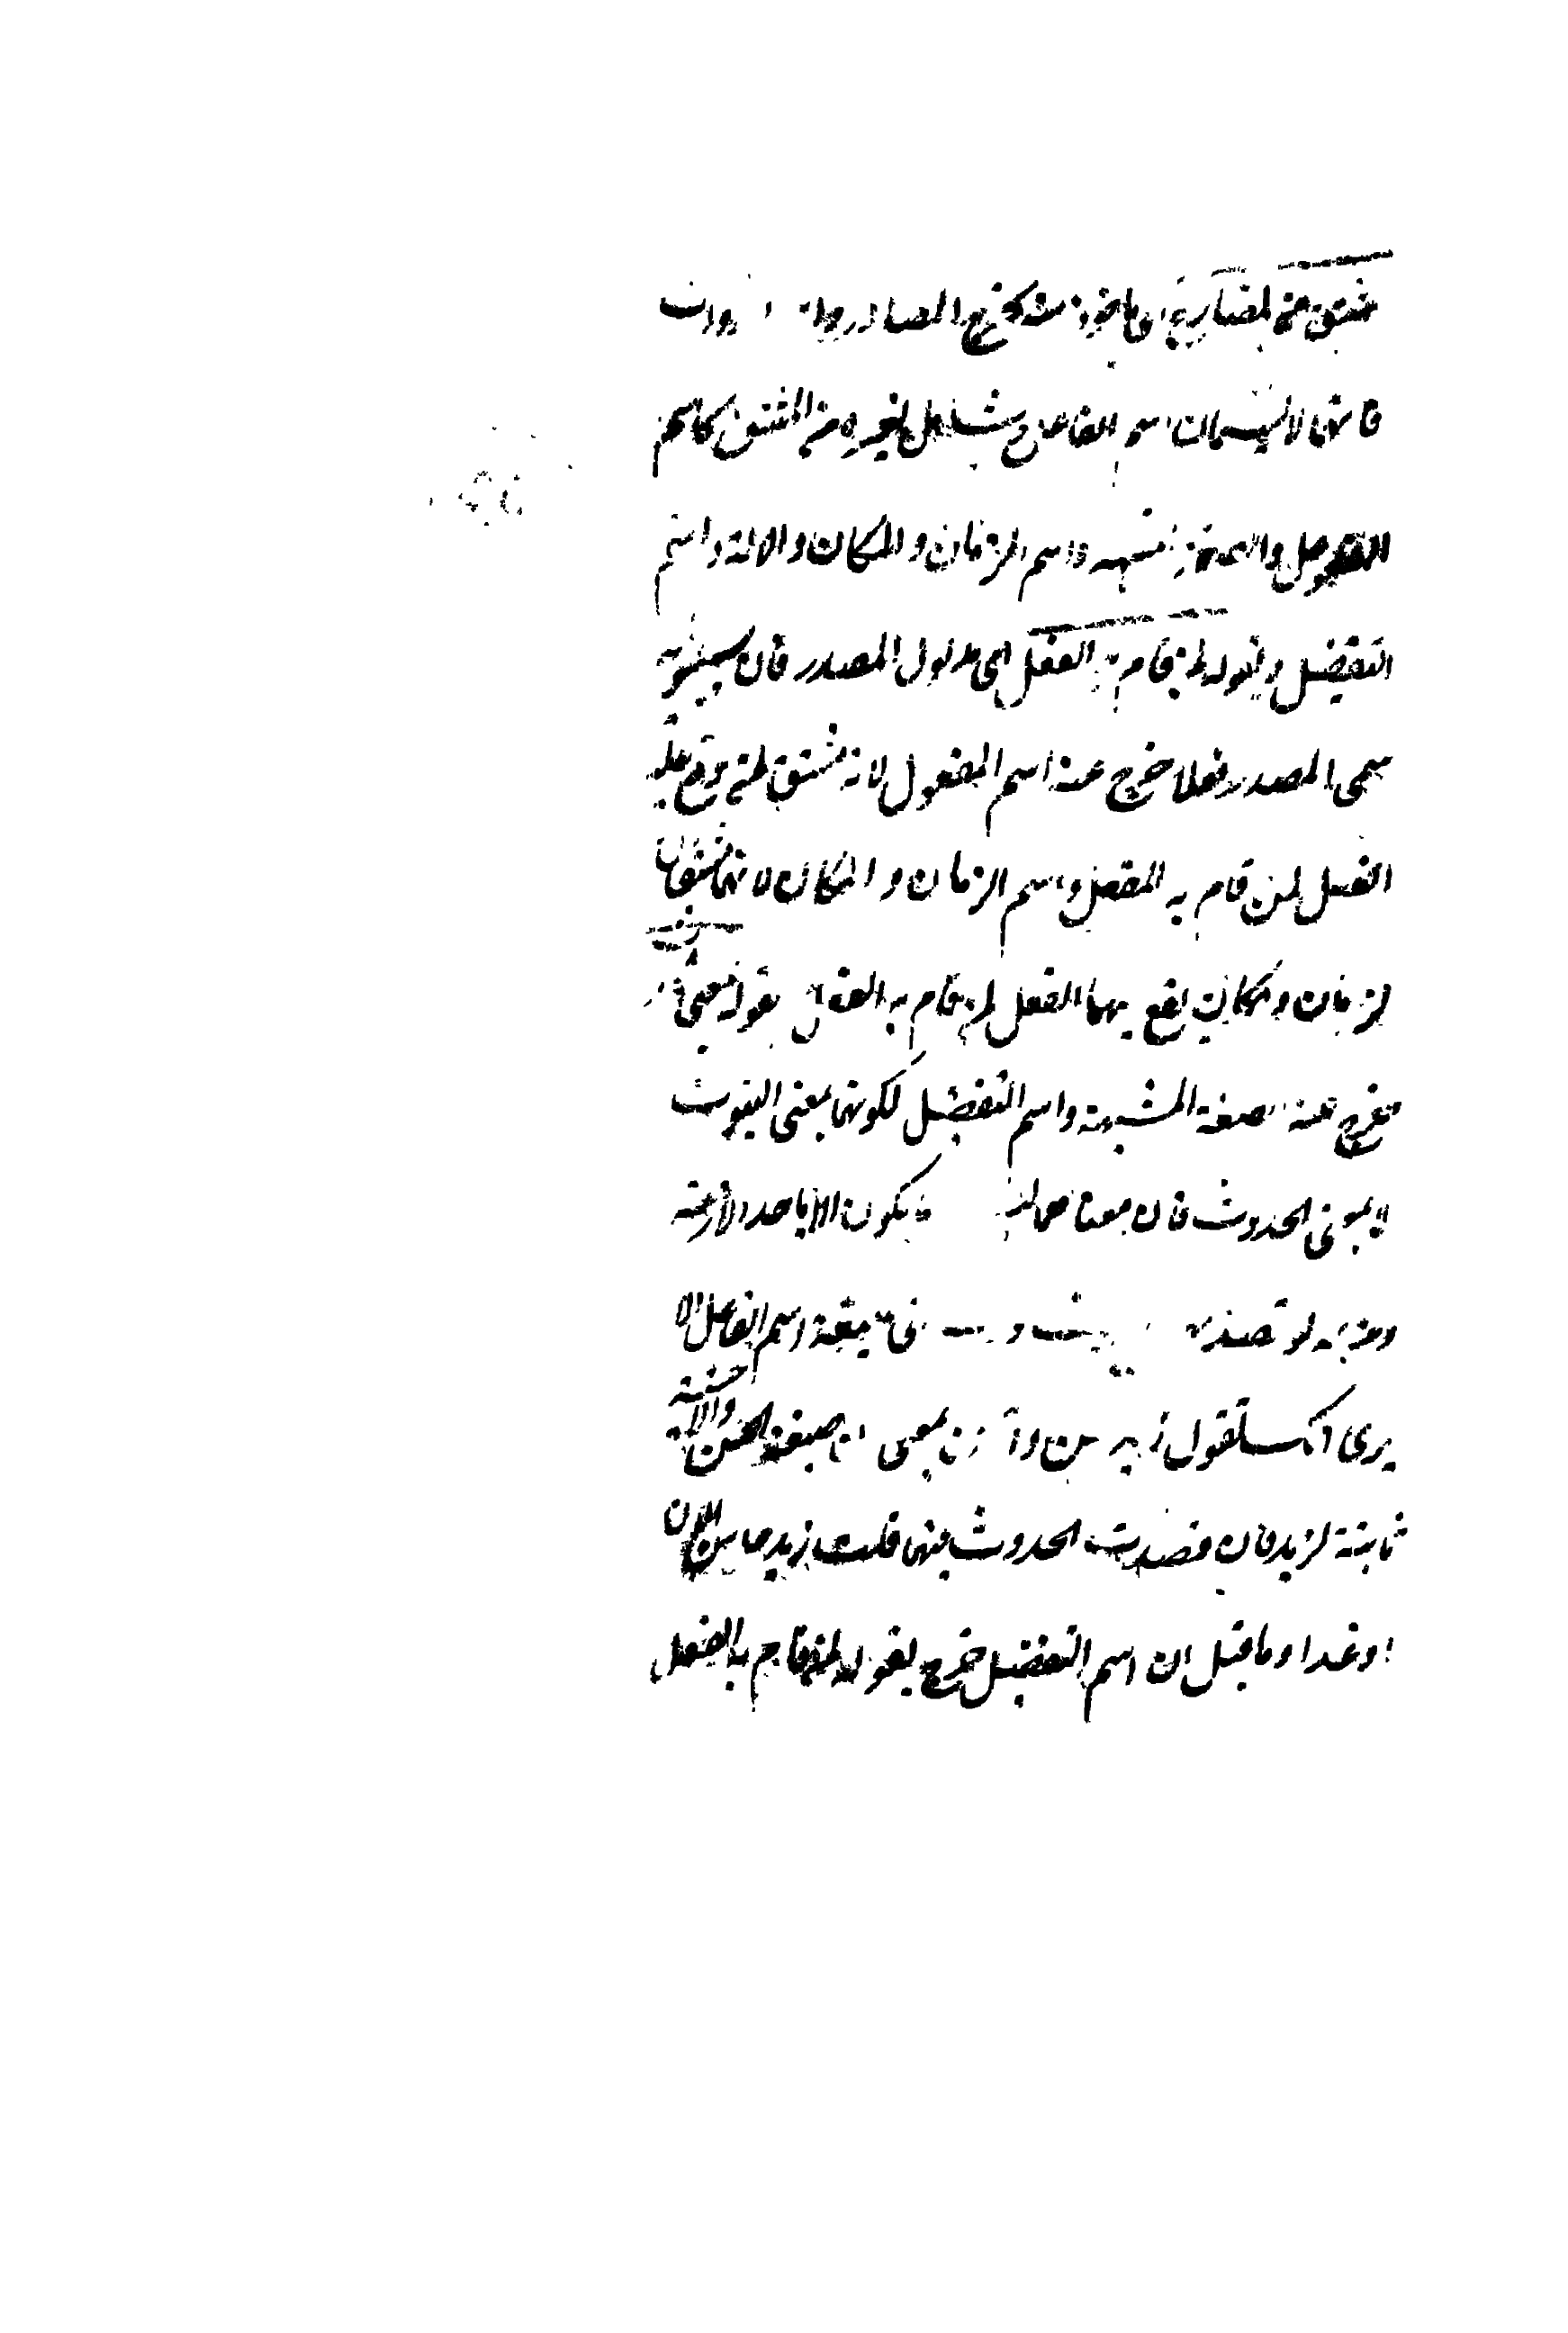 مشتق من المضارع اى ماخوذ منه يخرج المصادر
فانهما لا يسميان اسم الفاعل وشامل لغيره من المشتق كاسم
المفعول والصفة المشبهة واسم الزمان والمكان والالة واسم
التفضيل وبقوله لمن قام به الفعل اى مدلول المصدر فان سيبويه
سمى المصدر فعلا خرج عنه اسم المفعول لانه مشتق لمن وقع عليه
الفعل لمن قام به الفعل واسم الزمان والمكان لانهما مشتقان
لزمان ومكان يقع بهما الفعل لم يقم به الفعل بقوله بمعنى
يخرج عنه الصفة المشبهة واسم التفضيل لكونهما بمعنى الثبوت
لا بمعنى الحدوث فان معناهما يكون الا باحد الازمنة
ومن ثمه لو قصد صيغة اسم الفاعل الا
يرى انك تقول زيد حسن بمعنى ان صيغة الحسن
ثابتة لزيد فان قصدت الحدوث منها قلت زيد حاسن الان
او غدا وما قيل ان اسم التفضيل خرج بقوله لمن قام به الفعل